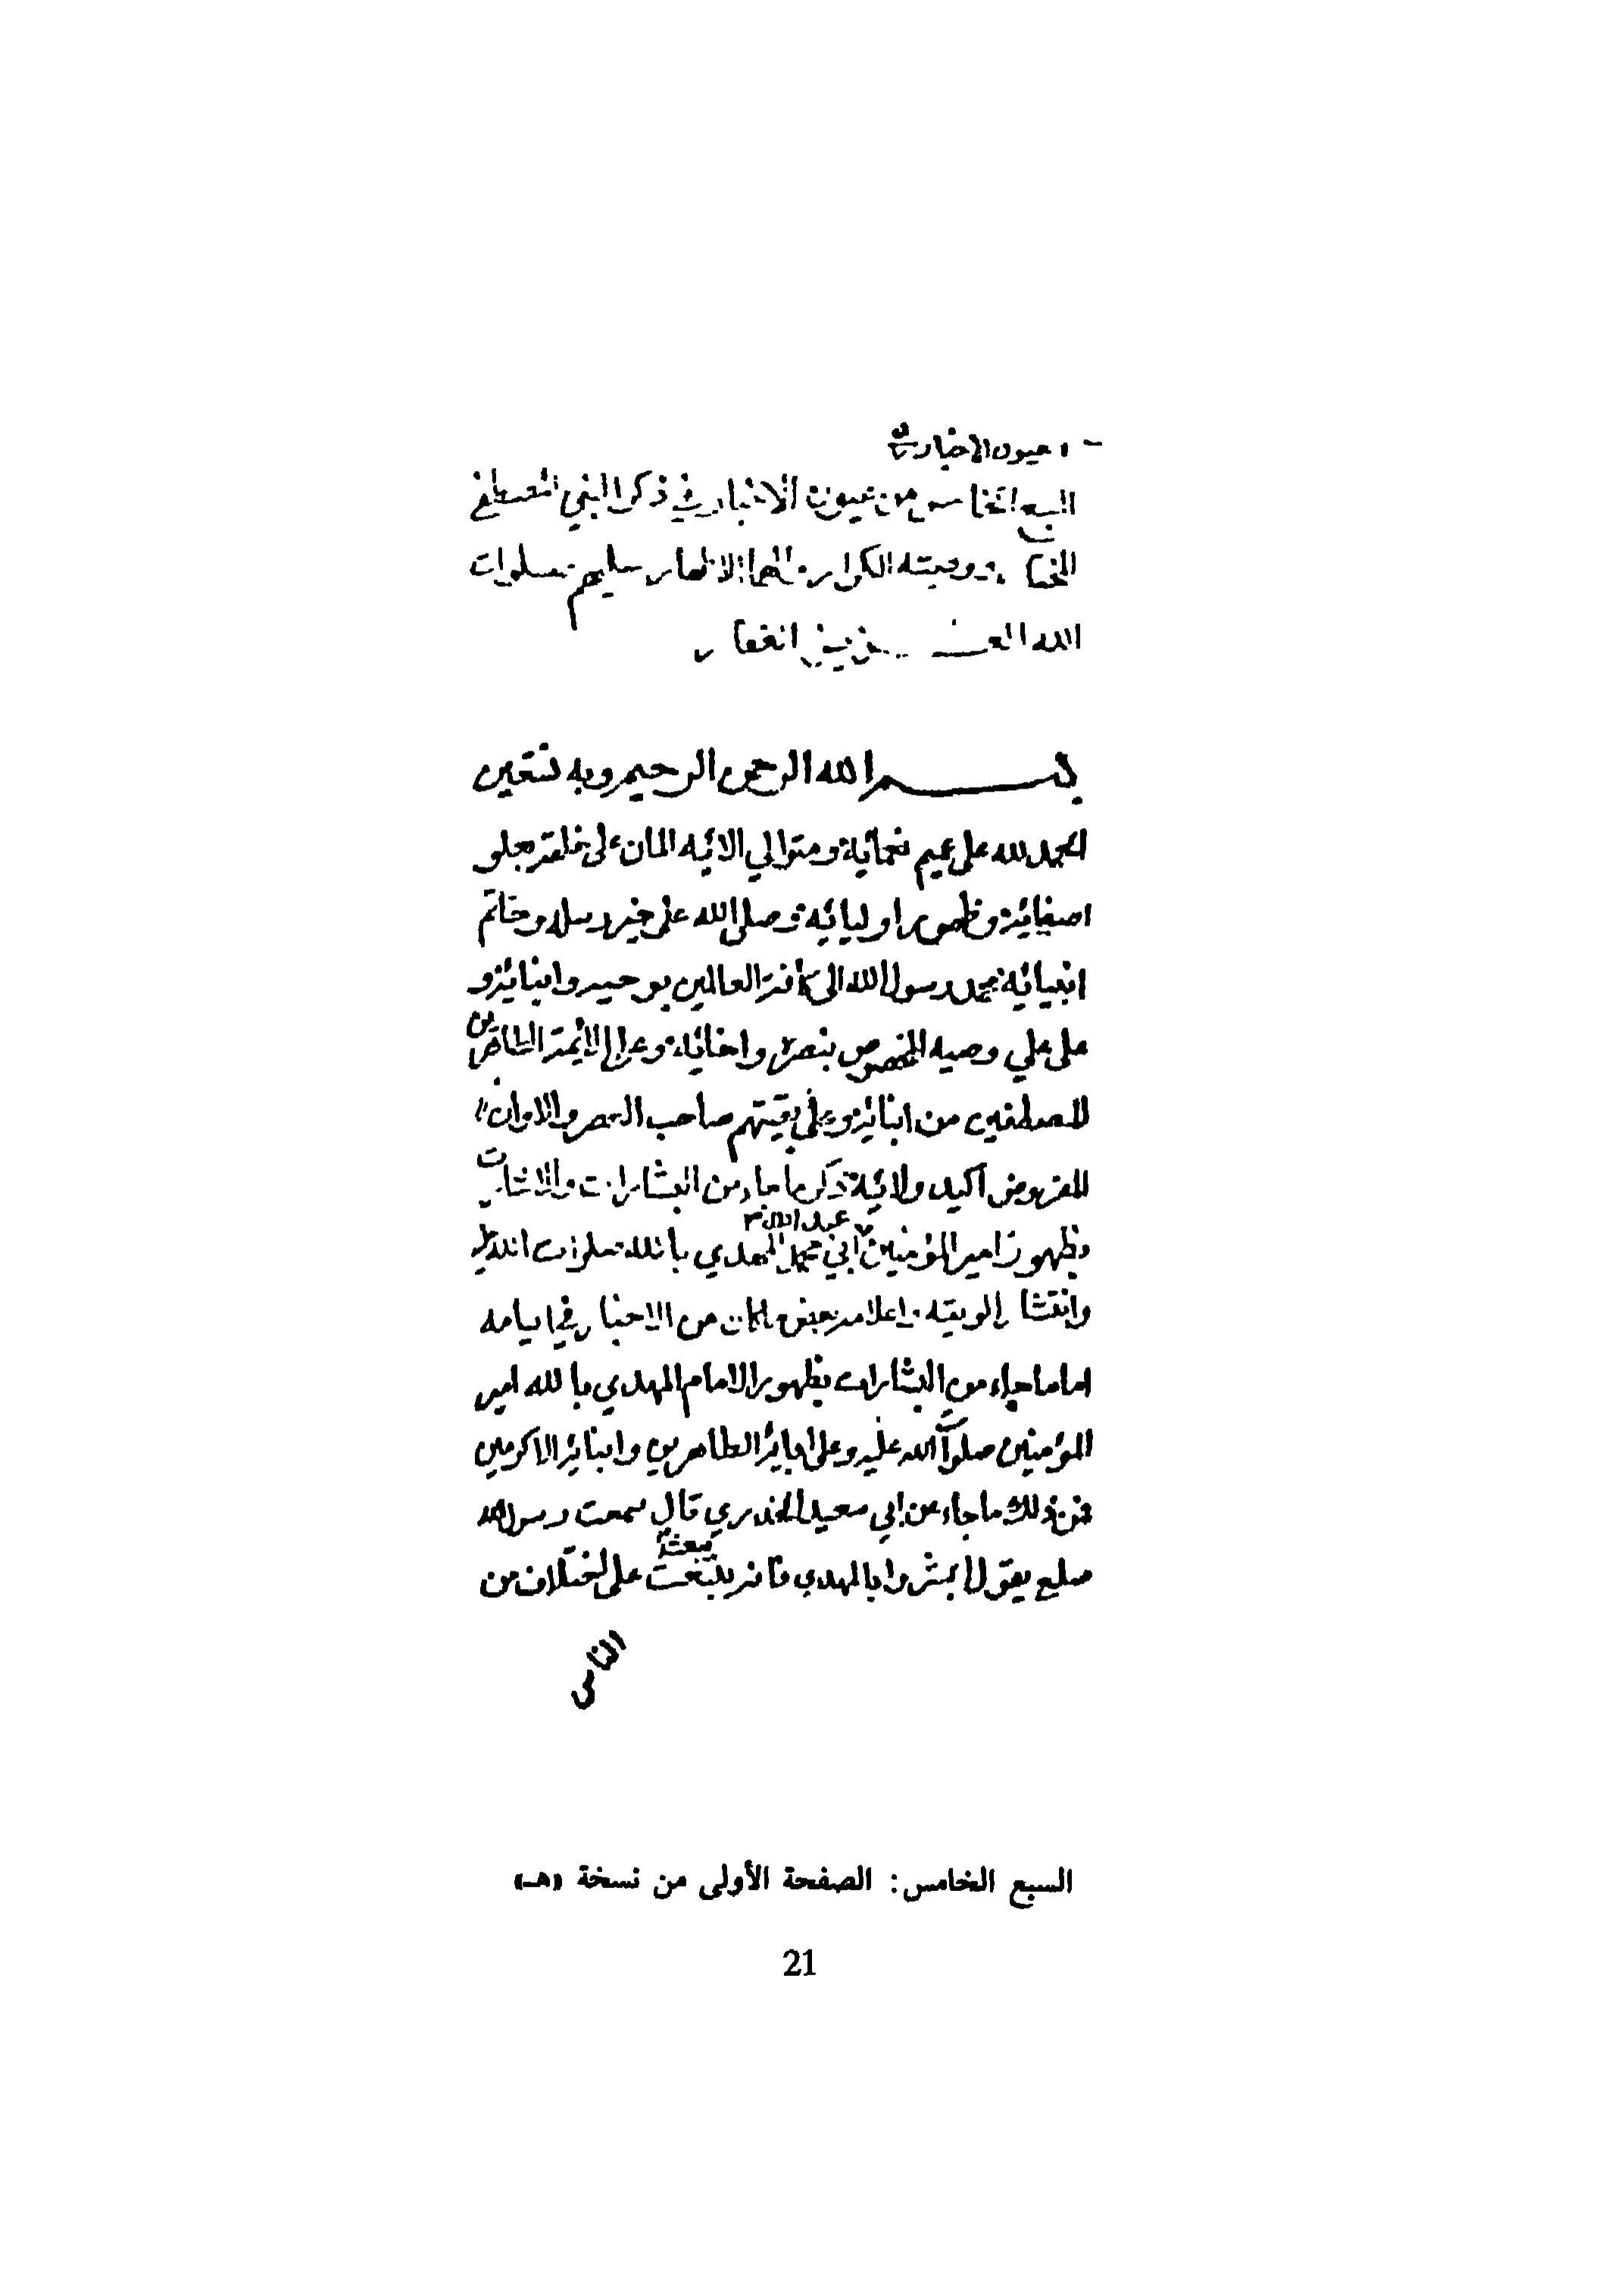 عيون الاخبار
السبع الخامس من عيون الاخبار في ذكر النبي المصطفى
المختار ووصيته الكرار الاطهار عليهم صلوات
الله العزيز الغفار
بسم الله الرحمن الرحيم وبه نستعين
الحمد لله على عميم نعمائه ومتوالي الائه المان على خلقه
اصفيائه وظهور اوليائه وصلى الله على خير رسله وخاتم
انبيائه محمد رسول الله الى كافة العالمين بوحيه وانبائه و
على علي وصيه المخصوص بنصره واخائه وعلى الائمة الطاهرين
المصطفين من ابنائه وعلى بقيتهم صاحب العصر والاوان
المفروض اكيد ولائه ذكر ما جاء من البشارات والاشارات
بظهور امير المؤمنين ابي محمد عبد الله المهدي بالله صلوات الله عليه
وانتشار الويته واعلامه وبعض ما كان من الاخبار في ايامه
اما ما جاء من البشارات بظهور الامام المهدي بالله امير
المؤمنين صلوات الله عليه وعلى ابائه الطاهرين وابنائه الاكرمين
فمن ذلك ما جاء عن ابي سعيد الخدري قال سمعت رسول الله
صلع يقول ابشروا بالمهدي فانه يبعث على اختلاف من
الناس
السبع الخامس: الصفحة الأولى من نسخة (هـ)
21